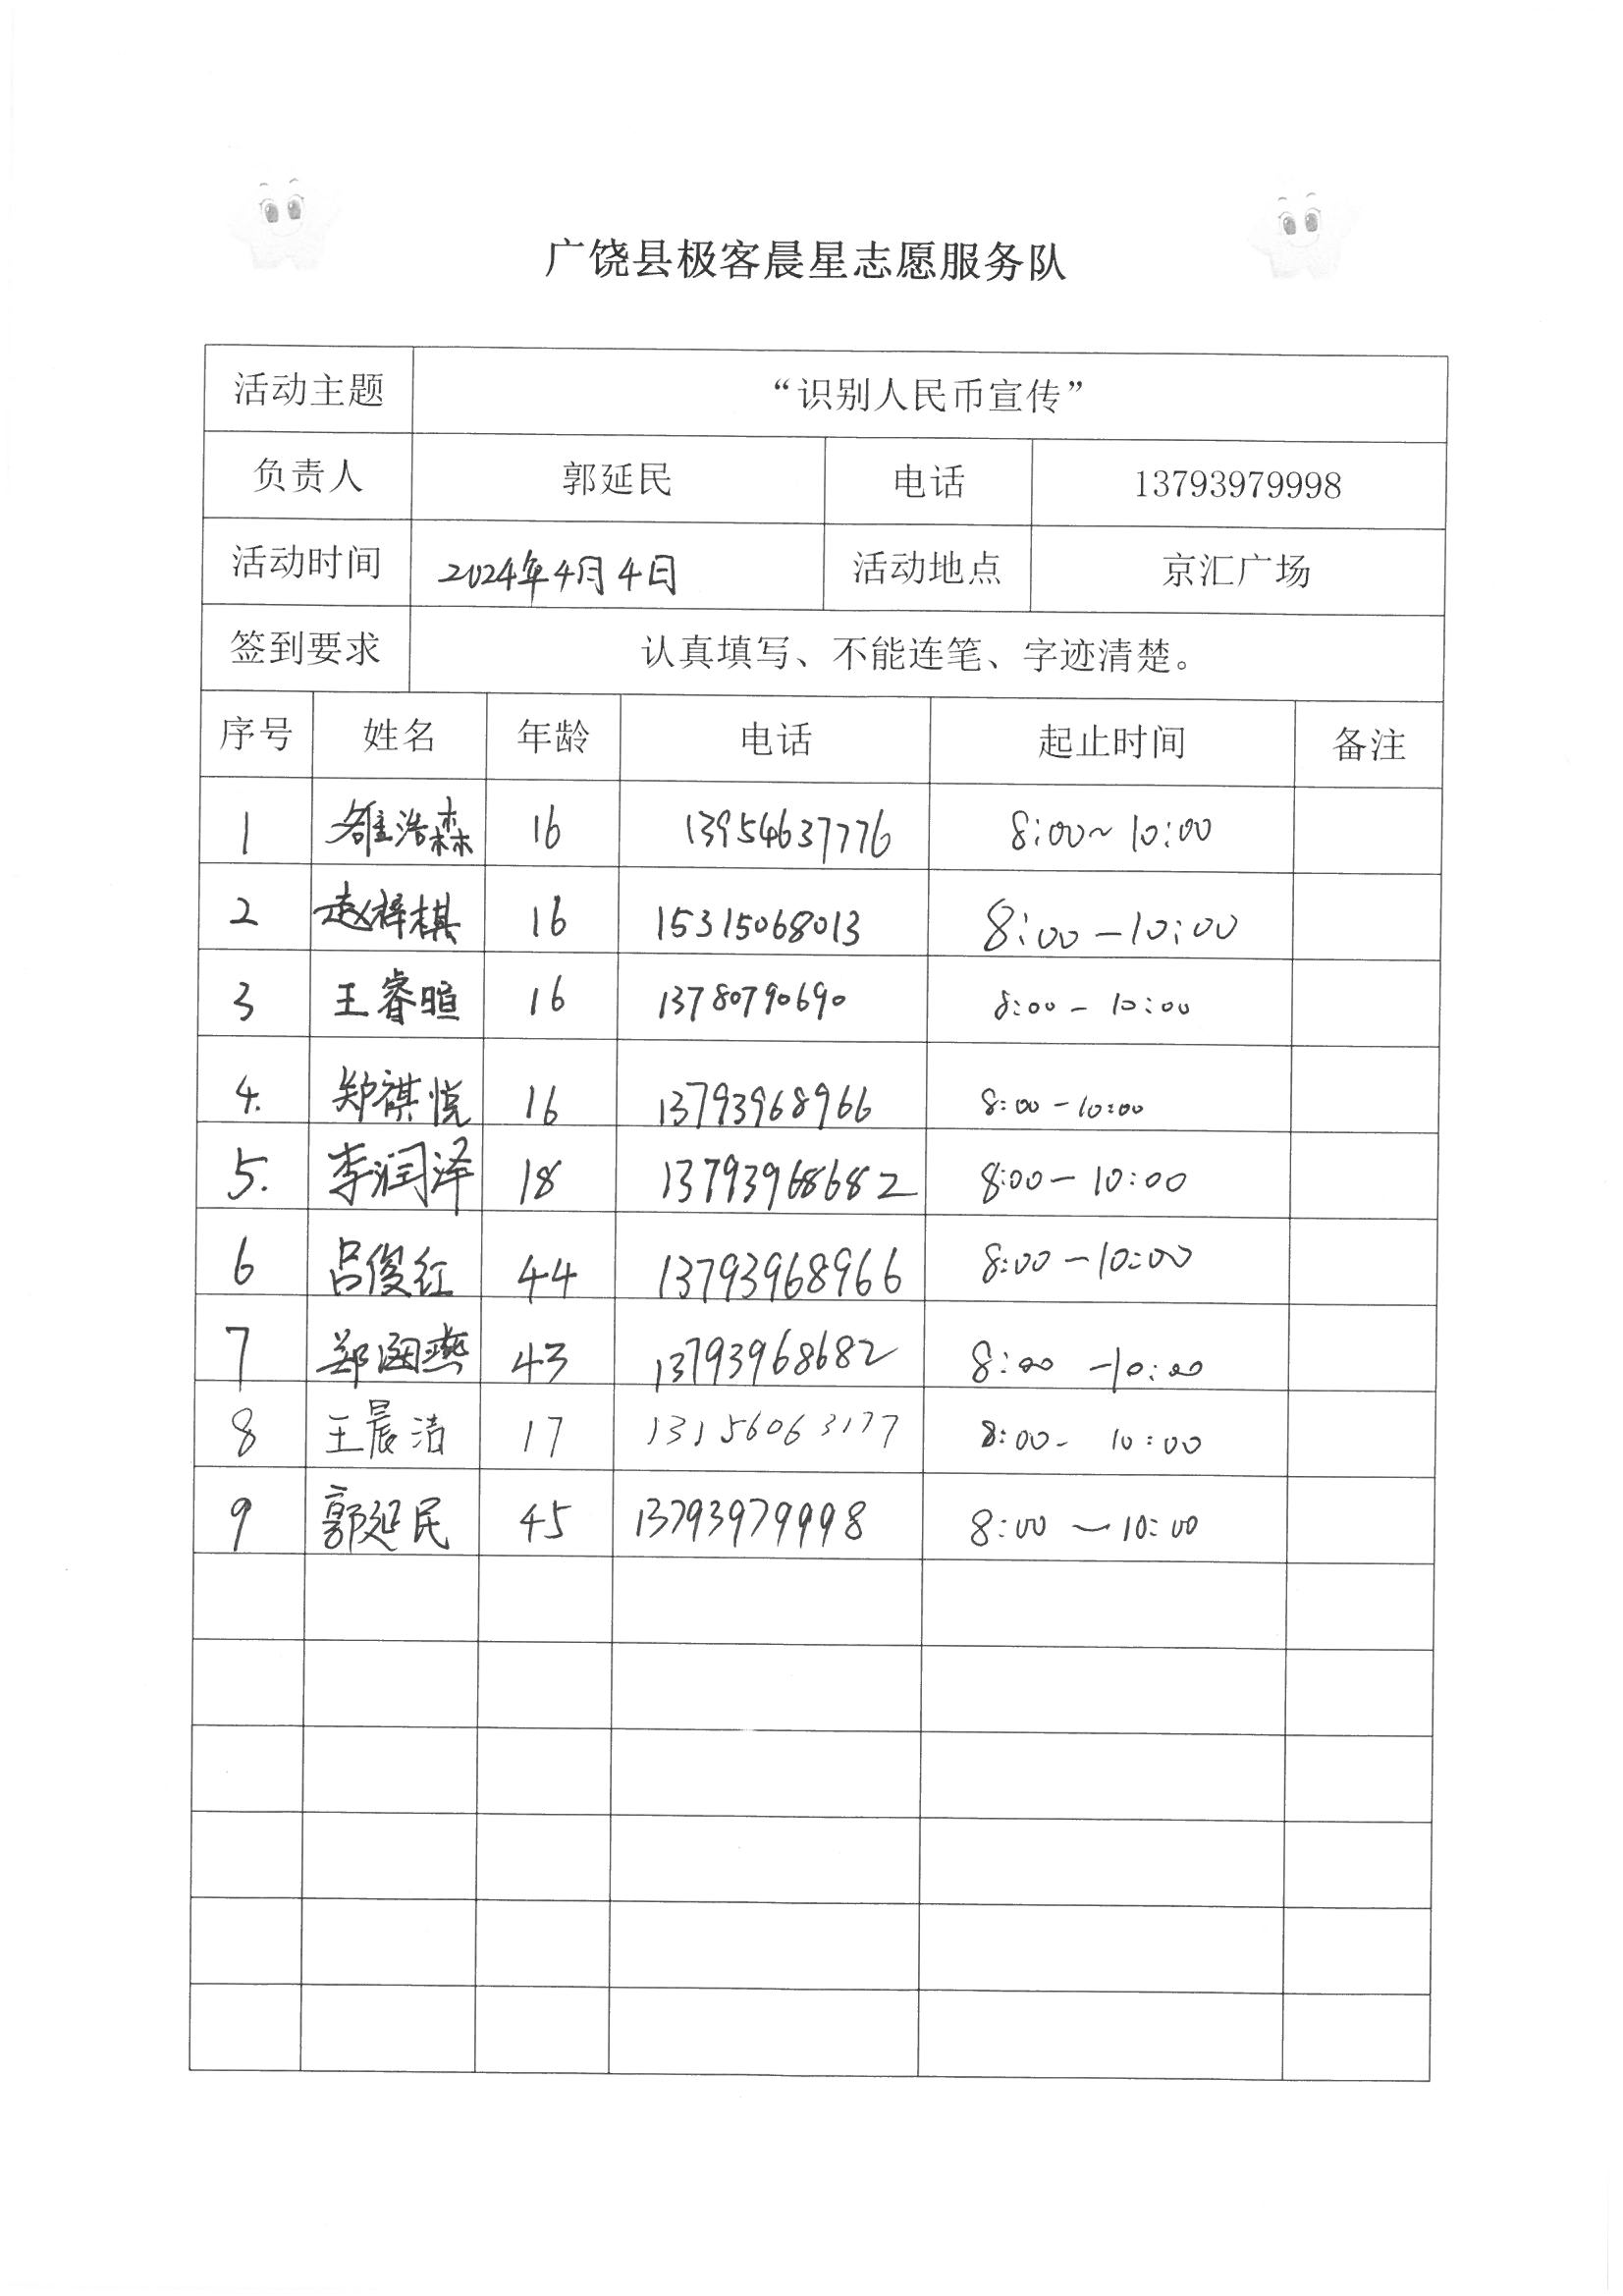 广饶县极客晨星志愿服务队
活动主题 “识别人民币宣传”
负责人 郭延民 电话 13793979998
活动时间 2024年4月4日 活动地点 京汇广场
签到要求 认真填写、不能连笔、字迹清楚。
序号 姓名 年龄 电话 起止时间 备注
1 雒浩森 16 13954637776 8:00~10:00
2 赵梓棋 16 15315068013 8:00-10:00
3 王睿暄 16 13780790690 8:00-10:00
4. 郑祺悦 16 13793968966 8:00-10:00
5. 李润泽 18 13793968682 8:00-10:00
6 吕俊红 44 13793968966 8:00-10:00
7 郑海燕 43 13793968682 8:00-10:00
8 王晨洁 17 13156063177 8:00-10:00
9 郭延民 45 13793979998 8:00-10:00